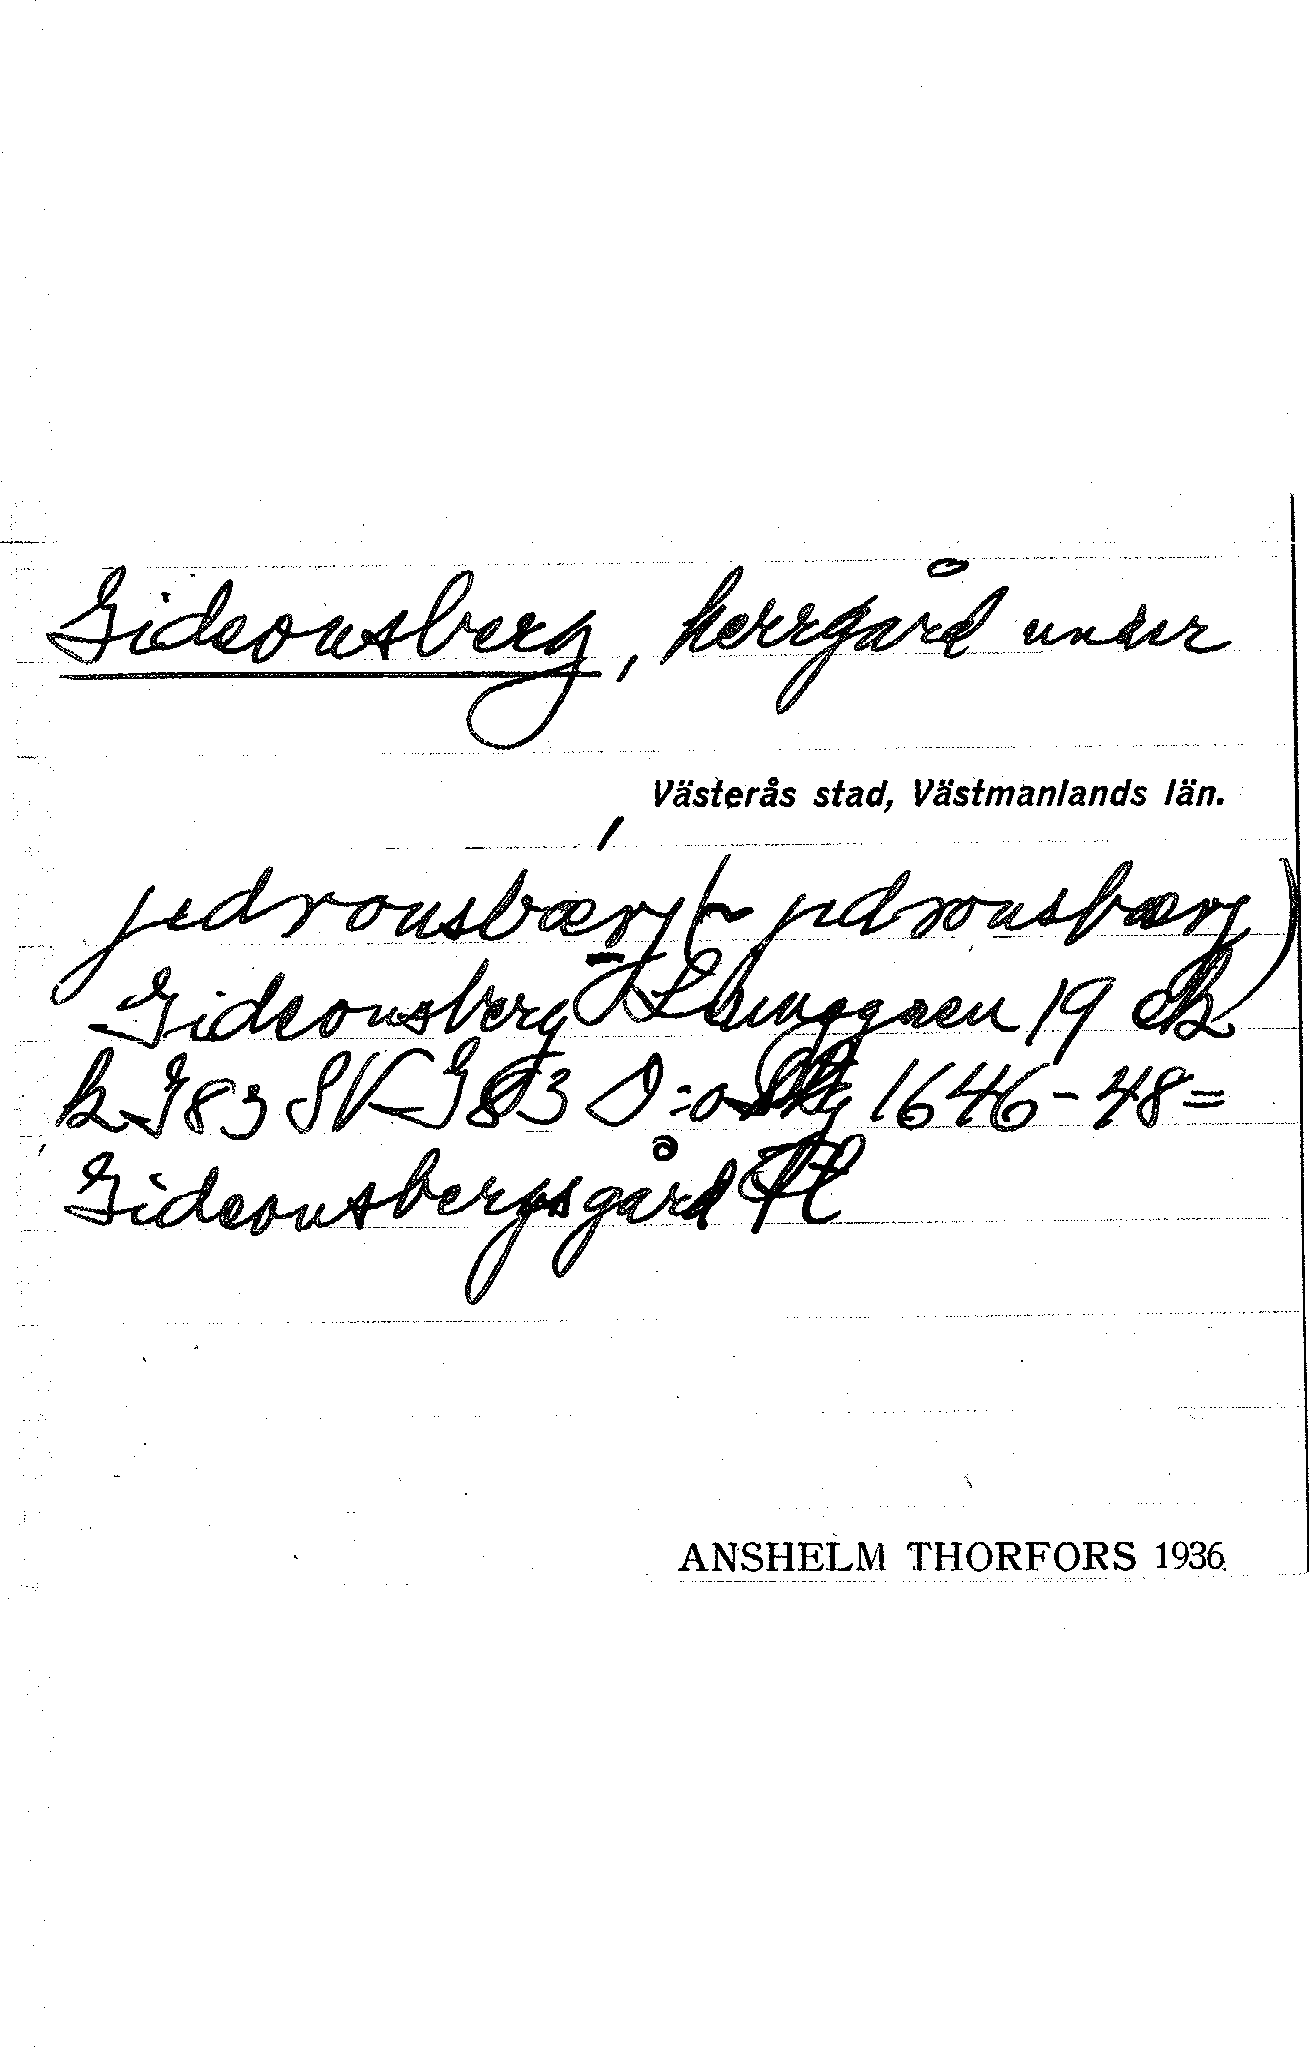 Gideonsberg, herrgård under
Västerås stad, Västmanlands län.
jedronsbærj (~ jidronsbærj)
Gideonsberg 19 ek
k G83 SK G83 1646-48=
Gideonsbergsgård
ANSHELM THORFORS 1936.